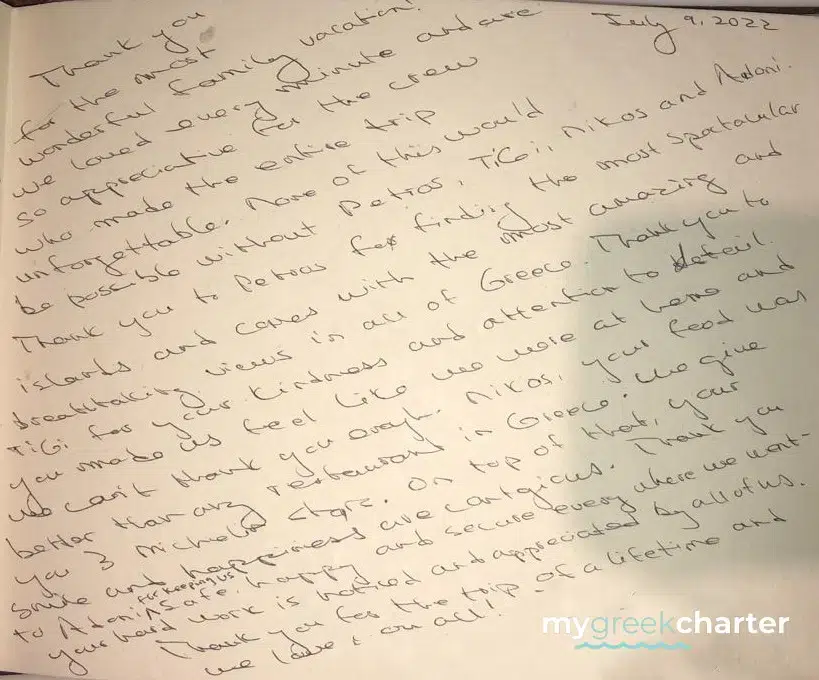 July 9, 2022
Thank you
for the most
wonderful family vacation!
we loved every minute and are
so appreciative for the crew
who made the entire trip
unforgettable. None of this would
be possible without Petros, TiGi, Nikos and Adoni.
Thank you to Petros for finding the most spatacular
islands and coves with the most amazing and
breathtaking views in all of Greece. Thank you to
TiGi for your kindness and attention to detail.
you made us feel like we were at home and
we can't thank you enough. Nikos, your food was
better than any restaurant in Greece. We give
you 3 Michelin stars. On top of that, your
smile and happiness are contagious. Thank you
to Adoni for keeping us safe, happy and secure every where we went-
your hard work is noticed and appreciated by all of us.
Thank you for the trip of a lifetime and
we love you all!
mygreekcharter